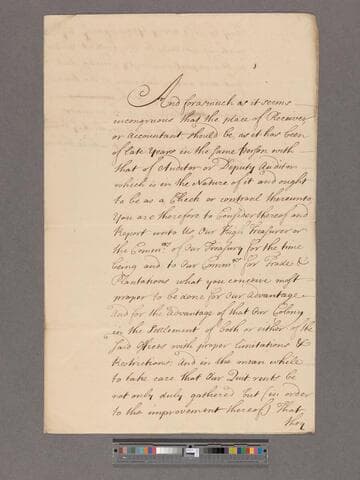 And forasmuch as it seems
incongruous that the place of Receiver
or Accountant should be as it has been
of late Years in the same Person with
that of Auditor or Deputy Auditor
which is in the Nature of it and ought
to be as a Check or controul thereunto
You are therefore to Consider thereof and
Report unto Us, Our High Treasurer or
the Comm.rs of Our Treasury for the time
being and to Our Comm.rs for Trade &
Plantations what you conceive most
proper to be done for Our Advantage
and for the Advantage of that Our Colony
in the Settlement of both or either of the
said Offices with proper Limitations &
Restrictions, And in the mean while
to take care that Our Quit rents be
not only duly gathered but (in order
to the improvement thereof) That
they